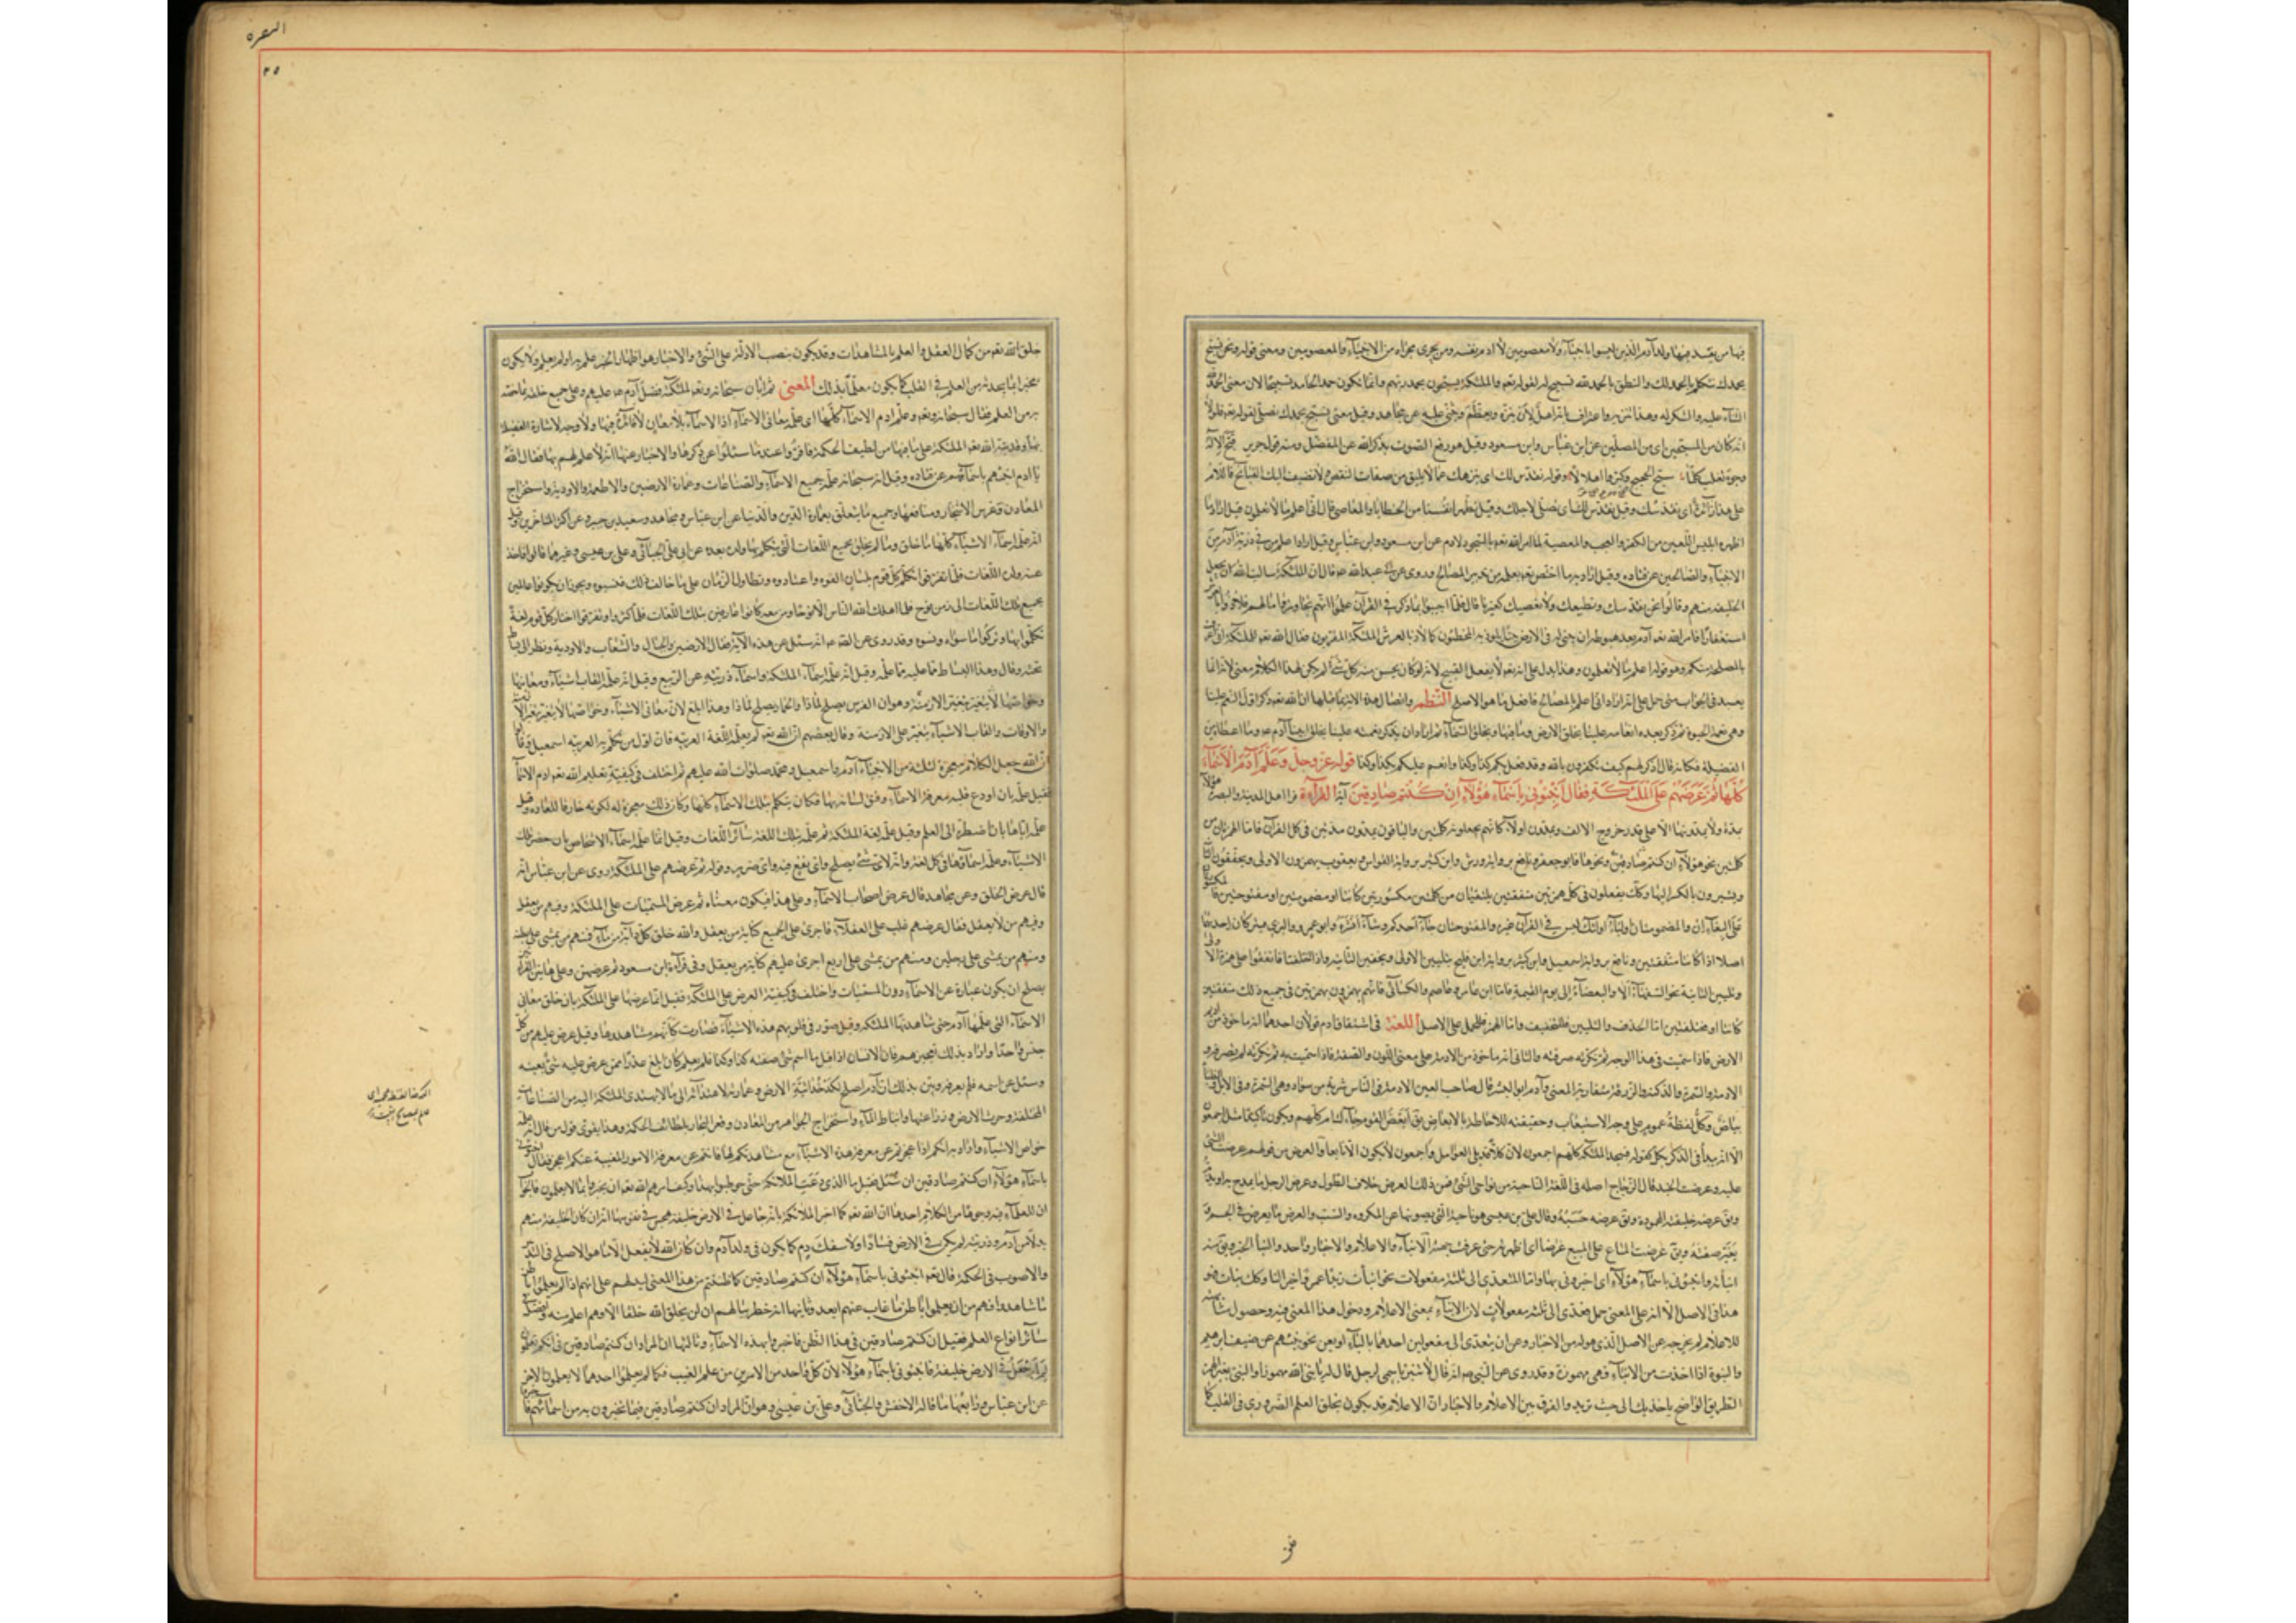 فيها من يفسد فيها ولد آدم الذين ليسوا بانبيآء ولا معصومين لا ادم نفسه ومن يجرى مجراه من الانبيآء والمعصومين ومعنى قوله ونحن نسبح
بحمدك نتكلم بالحمد لك والنطق بالحمد لله تسبيح له لقوله تعم والملئكة يسبحون بحمد ربهم وانما يكون حمد الحامد تسبيحا لان معنى الحمد لله
الثنآء عليه والشكر له وهذا تنزيه واعتراف بانه اهل لان ينزه ويعظم ويثنى عليه عن مجاهد وقيل معنى نسبح بحمدك نصلى لقوله تعم فلولا
انه كان من المسبحين اى من المصلين عن ابن عباس وابن مسعود وقيل هو رفع الصوت بذكر الله عن المفضل ومنه قول جرير قبح الاله
وجوه تغلب كلما سبح الحجيج وكبروا اهلالا وقوله نقدس لك اى ننزهك عما لا يليق من صفات النقص ولا نضيف اليك القبائح فاللام
على هذا زائدة اى نقدسك وقيل نقدس لك اى نصلى لاجلك وقيل نطهر انفسنا من الخطايا والمعاصى قال انى اعلم ما لا تعلمون قيل اراد ما
اظهره ابليس اللعين من الكفر والعجب والمعصية لما امر الله تعم بالسجود لادم عن ابن مسعود وابن عباس وقيل اراد اعلم من فى ذرية آدم من
الانبيآء والصالحين عن قتاده وقيل اراد به ما اختص تعم بعلمه من تدبير المصالح وروى عن ابى عبد الله ع قال ان الملئكة سالت الله ان يجعل
الخليفه منهم وقالوا نحن نقدسك ونطيعك ولا نعصيك كغيرنا قال فلما اجيبوا بما ذكر فى القرآن علموا انهم تجاوزوا ما لهم فلاذوا بالعرش
استغفارا فامر الله تعم آدم بعد هبوطه ان يبنى له فى الارض بيتا يلوذ به المخطئون كما لاذ بالعرش الملئكة المقربون فقال الله تعم للملئكة انى اعرف
بالمصلحة منكم وهو قوله اعلم ما لا تعلمون وهذا يدل على انه تعم لا يفعل القبيح لانه لو كان يحسن منه كل شئ لم يكن لهذا الكلام معنى لانه انما
يفيد فى الجواب متى حمل على انه اراد انى اعلم بالمصالح فافعل ما هو الاصلح النظم واتصال هذه الاية بما قبلها ان الله تعم ذكر اول النعم علينا
وهى نعمة الحيوة ثم ذكر بعده انعامه علينا بخلق الارض وما فيها وبخلق السمآء ثم اراد ان يذكر نعمته علينا بخلق ابينا آدم ع وما اعطاه من
الفضيلة فكانه قال اذكر لهم كيف تكفرون بالله وقد فعل بكم كذا وكذا وانعم عليكم بكذا وكذا قوله عز وجل وعلم آدم الاسمآء
كلها ثم عرضهم على الملئكة فقال انبئونى باسمآء هؤلآء ان كنتم صادقين آية القرآءة قرا اهل المدينة والبصرة هؤلاء
بمدة ولا يمدونها الا على قدر خروج الالف ويمدون اولآء كانهم يجعلونه كلمتين والباقون يمدون مدتين فى كل القرآن فاما الهمزتان من
كلمتين نحو هؤلآء ان كنتم صادقين ونحوها فابو جعفر ونافع برواية ورش وابن كثير برواية القواس ويعقوب يهمزون الاولى ويخففون الثانية
ويشيرون بالكسر اليها وكذلك يفعلون فى كل همزتين متفقتين تلتقيان من كلمتين مكسورتين كانتا او مضمومتين او مفتوحتين فالمكسورتان
على البغآء ان والمضمومتان اوليآء اولئك ليس فى القرآن غيره والمفتوحتان جآء احدكم وشآء انشره وابو عمرو والبزى بهمزة واحدة فيتركان احداهما
اصلا اذا كانتا متفقتين ونافع برواية اسمعيل وابن كثير برواية ابن فليح بتليين الاولى وتحقيق الثانية واذا اختلفتا فاتفقوا على همزة الاولى
وتليين الثانية نحو السفهآء الا والبغضآء الى يوم القيمة فاما ابن عامر وعاصم والكسآئى فانهم يهمزون بهمزتين فى جميع ذلك متفقتين
كانتا او مختلفتين اما الحذف والتليين فللتخفيف واما الهمز فللحمل على الاصل اللغة فى اشتقاق ادم قولان احدهما انه ماخوذ من اديم
الارض فاذا سميت به فى هذا الوجه ثم نكرته صرفته والثانى انه ماخوذ من الادمة على معنى اللون والصفة فاذا سميت به ثم نكرته لم تصرفه و
الادمة والسمرة والدكنة والورقة متقاربة المعنى وآدم ابو البشر قال صاحب العين الادمة فى الناس شربة من سواد وهى السمرة وفى الابل والظبآء
بياض وكل لفظة عموم على وجه الاستيعاب وحقيقته للاحاطة بالابعاض يق ابعض القوم جآءك ام كلهم ويكون تاكيدا مثل اجمعون
الا انه يبدأ فى الذكر بكل كقوله فسجد الملئكة كلهم اجمعون لان كلا قد يلى العوامل واجمعون لا يكون الا تابعا والعرض من قولهم عرضت الشئ
عليه وعرضت الجند قال الزجاج اصله فى اللغة الناحية من نواحى الشئ فمن ذلك العرض خلاف الطول وعرض الرجل ما يمدح به او يذم
ويق عرضه خليقته المحمودة ويق عرضه حسبه وقال على بن عيسى هو ناحيته التى يصونها عن المكروه والسب والعرض ما يعرض فى الجسم
يغير صفته ويق عرضت المتاع على المبيع عرضا اى اظهرته حتى عرفت جهته الانبآء والاعلام والاخبار واحد والنبأ الخبر ويق منه
انبأته وانبئونى باسمآء هؤلآء اى اخبرونى بها واما المتعدى الى ثلثة مفعولات نحو انبأت زيدا عمرا خير الناس وكذلك نبات فهو
هذا فى الاصل الا انه على المعنى حمل فعدى الى ثلثة مفعولات لان الانبآء بمعنى الاعلام ودخول هذا المعنى فيه وحصول مشابهته
للاعلام لم يخرجه عن الاصل الذى هو له من الاخبار وعن ان يتعدى الى مفعولين احدهما بالبآء او بعن نحو نبئهم عن ضيف ابرهيم
والنبوة اذا اخذت من الانبآء فهى مهموزة وقد روى عن النبى ص انه قال لا تنبز باسمى لرجل قال له يا نبئ الله مهموزا والنبئ بغير همز
الطريق الواضح ياخذ بك الى حيث تريد والفرق بين الاعلام والاخبار ان الاعلام قد يكون بخلق العلم الضرورى فى القلب كما
خلق
البقره
٢٥
خلق الله تعم من كمال العقل والعلم بالمشاهدات وقد يكون بنصب الادلة على الشئ والاخبار هو اظهار الخبر علم به او لم يعلم ولا يكون
مخبرا بما يحدثه من العلم فى القلب كما يكون معلما بذلك المعنى ثم ابان سبحانه وتعم لملئكته فضل آدم ع عليهم وعلى جميع خلقه بما خصه
به من العلم فقال سبحانه وتعم وعلم ادم الاسمآء كلها اى علمه معانى الاسمآء اذ الاسمآء بلا معان لا فائدة فيها ولا وجه لاشارة الفضيلة
بها وقد نبه الله تعم الملئكة على ما فيها من لطيف الحكمة فاقروا عند ما سئلوا عن ذكرها والاخبار عنها انه لا علم لهم بها فقال الله
يا ادم انبئهم باسمآئهم عن قتاده وقيل انه سبحانه علمه جميع الاسمآء والصناعات وعمارة الارضين والاطعمة والادوية واستخراج
المعادن وغرس الاشجار ومنافعها وجميع ما يتعلق بعمارة الدين والدنيا عن ابن عباس ومجاهد وسعيد بن جبير وعن اكثر المتاخرين وقيل
انه علمه اسمآء الاشيآء كلها ما خلق وما لم يخلق بجميع اللغات التى يتكلم بها ولده بعده عن ابى على الجبائى وعلى بن عيسى وغيرهما قالوا فاخذ
عنه ولده اللغات فلما تفرقوا تكلم كل قوم بلسان الفوه واعتادوه وتطاول الزمان على ما خالف ذلك فنسوه ويجوز ان يكونوا عالمين
بجميع تلك اللغات الى زمن نوح فلما اهلك الله الناس الا نوحا ومن معه كانوا عارفين بتلك اللغات فلما كثروا وتفرقوا اختار كل قوم لغة
تكلموا بها وتركوا ما سواه ونسوه وقد روى عن الصادق ع انه سئل عن هذه الآية فقال الارضين والجبال والشعاب والاودية ونظر الى بساط
تحته وقال وهذا البساط مما علمه وقيل انه علمه اسمآء الملئكة واسمآء ذريته عن الربيع وقيل انه علمه القاب الاشيآء ومعانيها
وخواصها وهو ان الفرس يصلح لماذا والحمار يصلح لماذا وهذا ابلغ لان معانى الاشيآء وخواصها لا تتغير بتغير الازمنة
والاوقات والقاب الاشيآء تتغير على الازمنة وقال بعضهم ان الله تعم لم يعلمه اللغة العربية فان اول من تكلم بالعربية اسمعيل ع وقالوا
ان الله جعل الكلام معجزة لثلثة من الانبيآء آدم واسمعيل ومحمد صلوات الله عليهم ثم اختلف فى كيفية تعليم الله تعم ادم الاسمآء
فقيل علمه بان اودع قلبه معرفة الاسمآء وفتق لسانه بها فكان يتكلم بتلك الاسمآء كلها وكان ذلك معجزة له لكونه خارقا للعادة وقيل
علمه اياها بان اضطره الى العلم وقيل علمه لغة الملئكة ثم علمه بتلك اللغة سائر اللغات وقيل انما علمه اسمآء الاشخاص بان احضر تلك
الاشيآء وعلمه اسمآءها فى كل لغة وانه لاى شئ يصلح واى نفع فيه واى ضرر وقوله ثم عرضهم على الملئكة روى عن ابن عباس انه
قال عرض الخلق وعن مجاهد قال عرض اصحاب الاسمآء وعلى هذا فيكون معناه ثم عرض المسميات على الملئكة وفيهم من يعقل
وفيهم من لا يعقل فقال عرضهم غلب على العقلآء فاجرى على الجميع كناية من يعقل والله خلق كل دآبة من مآء فمنهم من يمشى على بطنه
ومنهم من يمشى على رجلين ومنهم من يمشى على اربع اجرى عليهم كناية من يعقل وفى قرآءة ابن سعود ثم عرضهن وعلى هاتين القرآءتين
يصلح ان يكون عبارة عن الاسمآء دون المسميات واختلف فى كيفية العرض على الملئكة فقيل انما عرضها على الملئكة بان خلق معانى
الاسمآء التى علمها آدم حتى شاهدتها الملئكة وقيل صور فى قلوبهم هذه الاشيآء فصارت كانهم شاهدوها وقيل عرض عليهم من كل
جنس واحدا واراد بذلك تعجيزهم فان الانسان اذا قيل ما اسم شئ صفته كذا وكذا فلم يعلم كان ابلغ عذرا ممن عرض عليه شئ بعينه
وسئل عن اسمه فلم يعرفه وبين بذلك ان آدم اصلح لكدخدائية الارض وعمارتها لاهتدائه الى ما لا يهتدى الملئكة اليه من الصناعات
المختلفة وحرث الارض وزراعتها وانباط المآء واستخراج الجواهر من المعادن وقعر البحار بلطائف الحكمة وهذا يقوى قول من قال انه علمه
خواص الاشيآء واراد به انكم اذا عجزتم عن معرفة هذه الاشيآء مع مشاهدتكم لها فانتم عن معرفة الامور المغيبة عنكم اعجز فقال انبئونى
باسمآء هؤلآء ان كنتم صادقين ان سئل فقيل ما الذى دعت الملائكة حتى خوطبوا بهذا وكيف امرهم الله تعم ان يخبروا بما لا يعلمون فالجواب
ان للعلمآء فيه وجوها من الكلام احدها ان الله تعم لما اخبر الملائكة بانه جاعل فى الارض خليفة هجس فى نفوسها انه ان كان الخليفة منهم
بدلا من آدم وذريته لم يكن فى الارض فساد ولا سفك دم كما يكون فى ولد آدم وان كان الله لا يفعل الا ما هو الاصلح فى التدبير
والاصوب فى الحكمة فقال تعم انبئونى باسمآء هؤلآء ان كنتم صادقين كما ظننتم من هذا المعنى ليدلهم على انهم اذا لم يعلموا باطن
ما شاهدوا فهم من ان يعلموا باطن ما غاب عنهم ابعد وثانيها انه خطر ببالهم ان لن يخلق الله خلقا الا وهم اعلم منه وافضل فى
سآئر انواع العلم فقيل ان كنتم صادقين فى هذا الظن فاخبروا بهذه الاسمآء وثالثها ان المراد ان كنتم صادقين فى انكم تعلمون
لم اجعل فى الارض خليفة فانبئونى باسمآء هؤلآء لان كل واحد من الامرين من علم الغيب فكما لم يعلموا احدهما لا يعلمون الاخر
عن ابن عباس ورابعها ما قاله الاخفش والجبائى وعلى بن عيسى وهو ان المراد ان كنتم صادقين فيما تخبرون به من اسمائهم فاخبروا